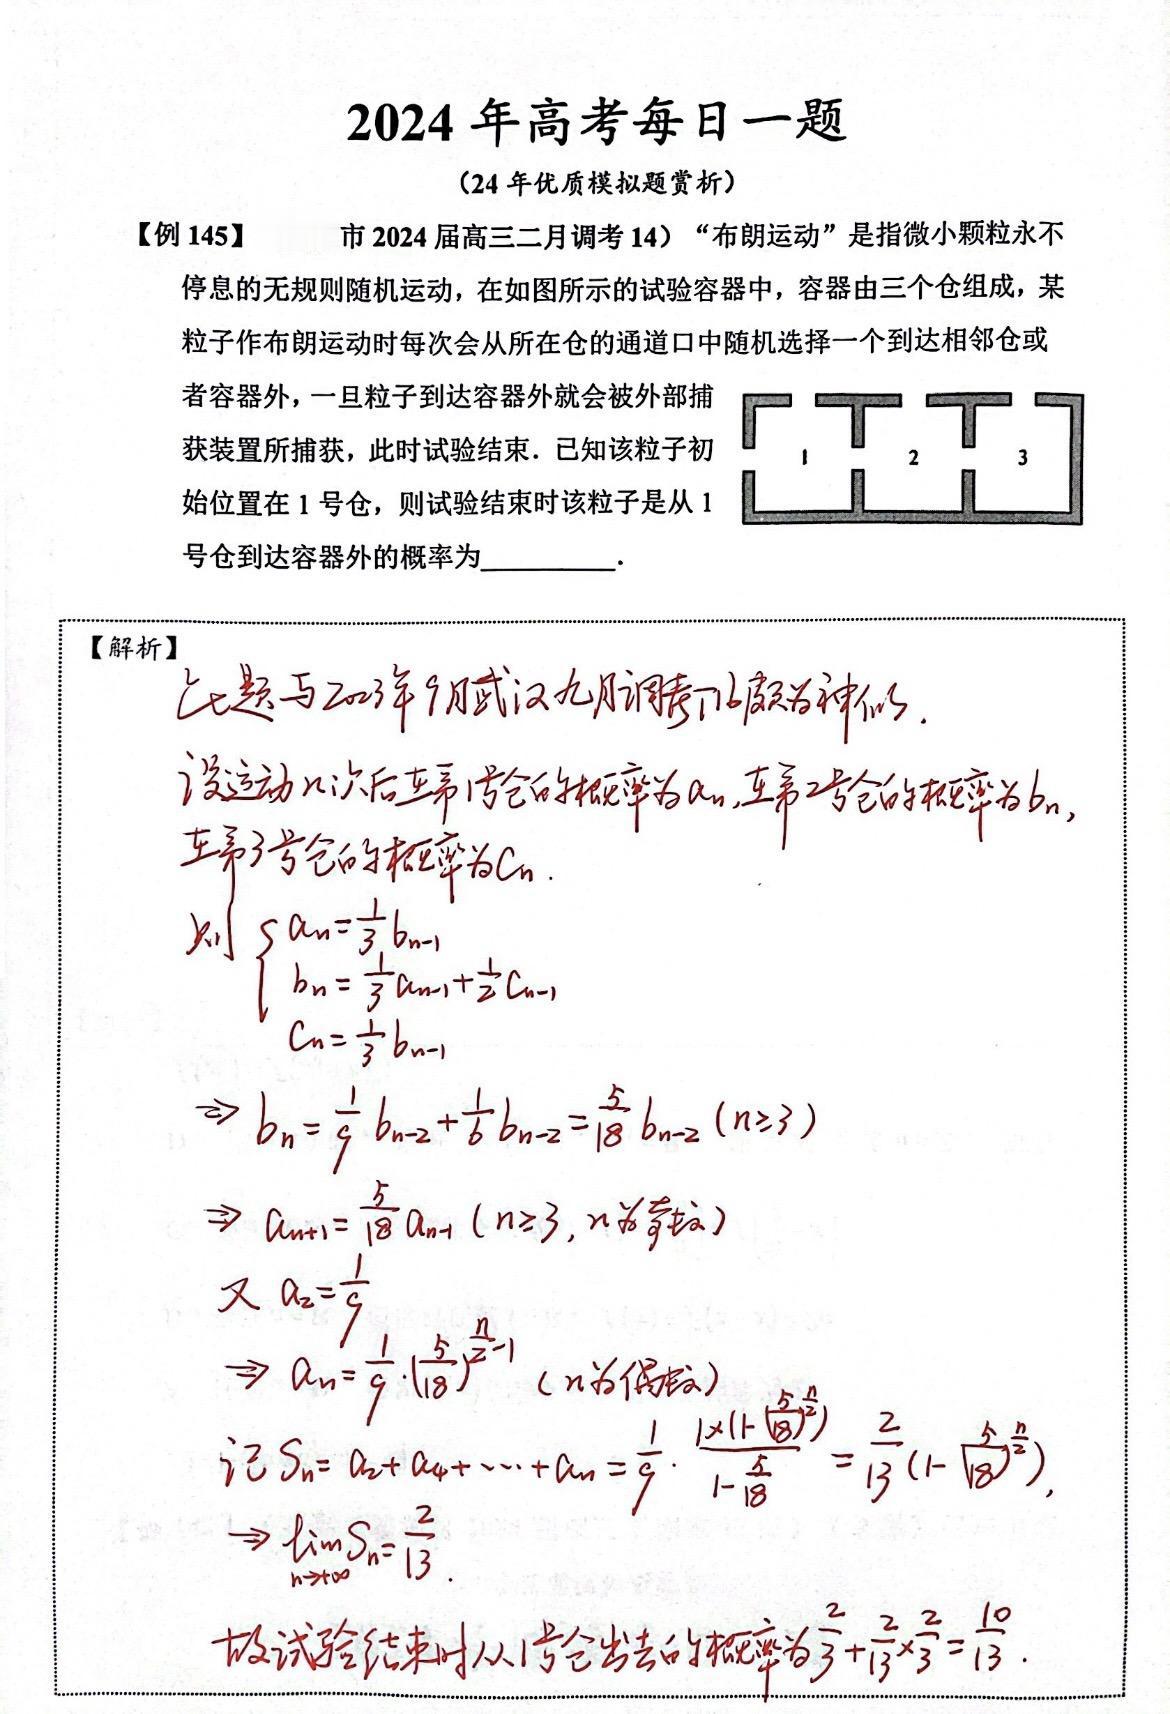 2024 年高考每日一题
（24 年优质模拟题赏析）
【例 145】 市 2024 届高三二月调考 14）“布朗运动”是指微小颗粒永不
停息的无规则随机运动，在如图所示的试验容器中，容器由三个仓组成，某
粒子作布朗运动时每次会从所在仓的通道口中随机选择一个到达相邻仓或
者容器外，一旦粒子到达容器外就会被外部捕
获装置所捕获，此时试验结束．已知该粒子初
始位置在 1 号仓，则试验结束时该粒子是从 1
号仓到达容器外的概率为__________．
1 2 3
【解析】
此题与2023年9月武汉九月调考T16颇为神似.
设运动n次后在第1号仓的概率为aₙ,在第2号仓的概率为bₙ,
在第3号仓的概率为Cₙ.
则 { aₙ=1/3 bₙ₋₁
bₙ=1/3 aₙ₋₁+1/2 Cₙ₋₁
Cₙ=1/3 bₙ₋₁
⇒ bₙ=1/9 bₙ₋₂+1/6 bₙ₋₂=5/18 bₙ₋₂ (n≥3)
⇒ aₙ₊₁=5/18 aₙ₋₁ (n≥3, n为奇数)
又 a₂=1/9
⇒ aₙ=1/9·(5/18)^(n/2-1) (n为偶数)
记 Sₙ=a₂+a₄+⋯+aₙ=1/9·(1×(1-(5/18)^(n/2)))/(1-5/18)=2/13(1-(5/18)^(n/2)),
⇒ lim n→+∞ Sₙ=2/13.
故试验结束时从1号仓出去的概率为2/3+2/13×2/3=10/13.